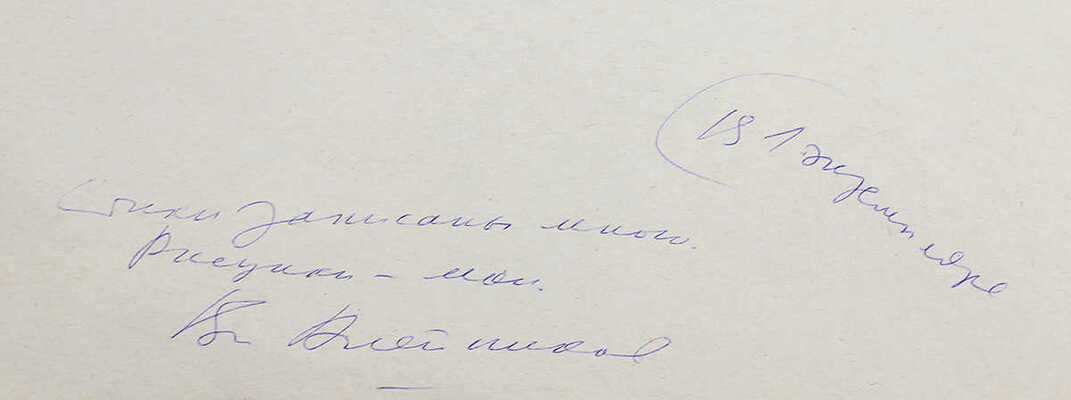 (В 1 экземпляре
Стихи записаны мною.
Рисунки – мои.
Вл Алейников